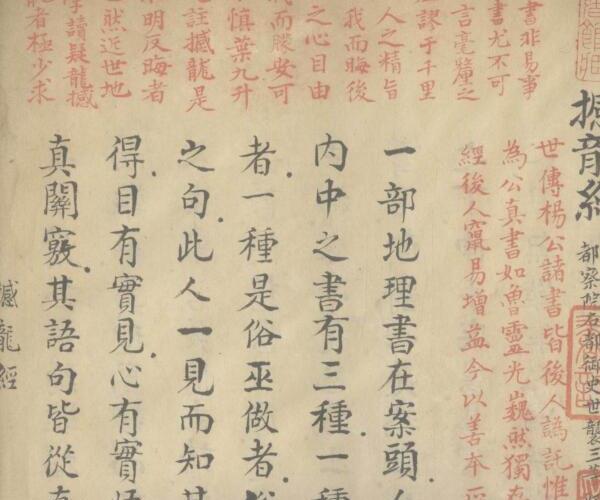 書非易事
書尤不可
言毫釐之
謬于千里
人之精旨
我而晦後
之心目由
我而朦安可
慎葉九升
註撼龍是
明反晦者
然近世地
讀疑龍撼
者極少求
撼龍經
都察院右都御史世襲三
世傳楊公諸書皆後人譌託惟
為公真書如魯靈光巍然獨
經後人竄易增益今以善本
一部地理書在案頭
內中之書有三種一種
者一種是俗巫做者
之句此人一見而知其
得目有實見心有實
真關竅其語句皆從
撼龍經